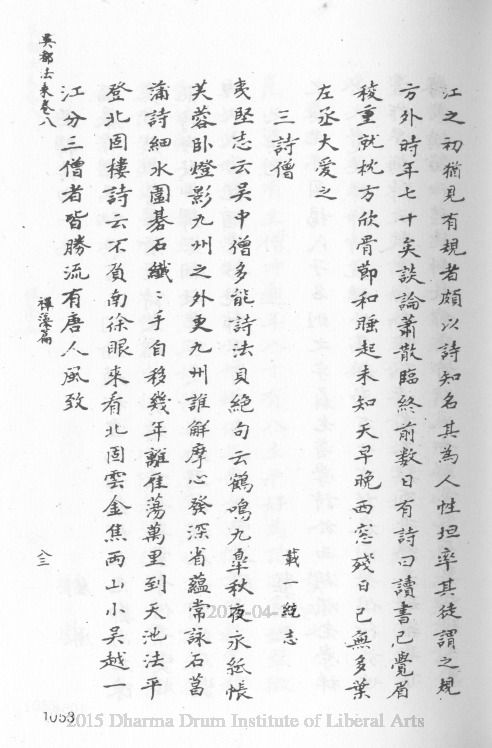 江之初猶見有規者頗以詩知名其為人性坦率其徒謂之規
方外時年七十矣談論蕭散臨終前数日有詩曰讀書已覺眉
稜重就枕方欣骨節和睡起未知天早晚西窓殘日已無多葉
左丞大愛之
載一統志
三詩僧
夷堅志云吳中僧多能詩法貝絶句云鶴鳴九臯秋夜永紙帳
芙蓉卧燈影九州之外更九州誰解摩心發深省蘊常詠石菖
蒲詩細水圍碁石纖纖手自移幾年離雁蕩萬里到天池法平
登北固樓詩云不負南徐眼來看北固雲金焦兩山小吳越一
江分三僧者皆勝流有唐人風致
吳都法乘卷八
禪藻篇
八三
1053
2015-04-
2015 Dharma Drum Institute of Liberal Arts